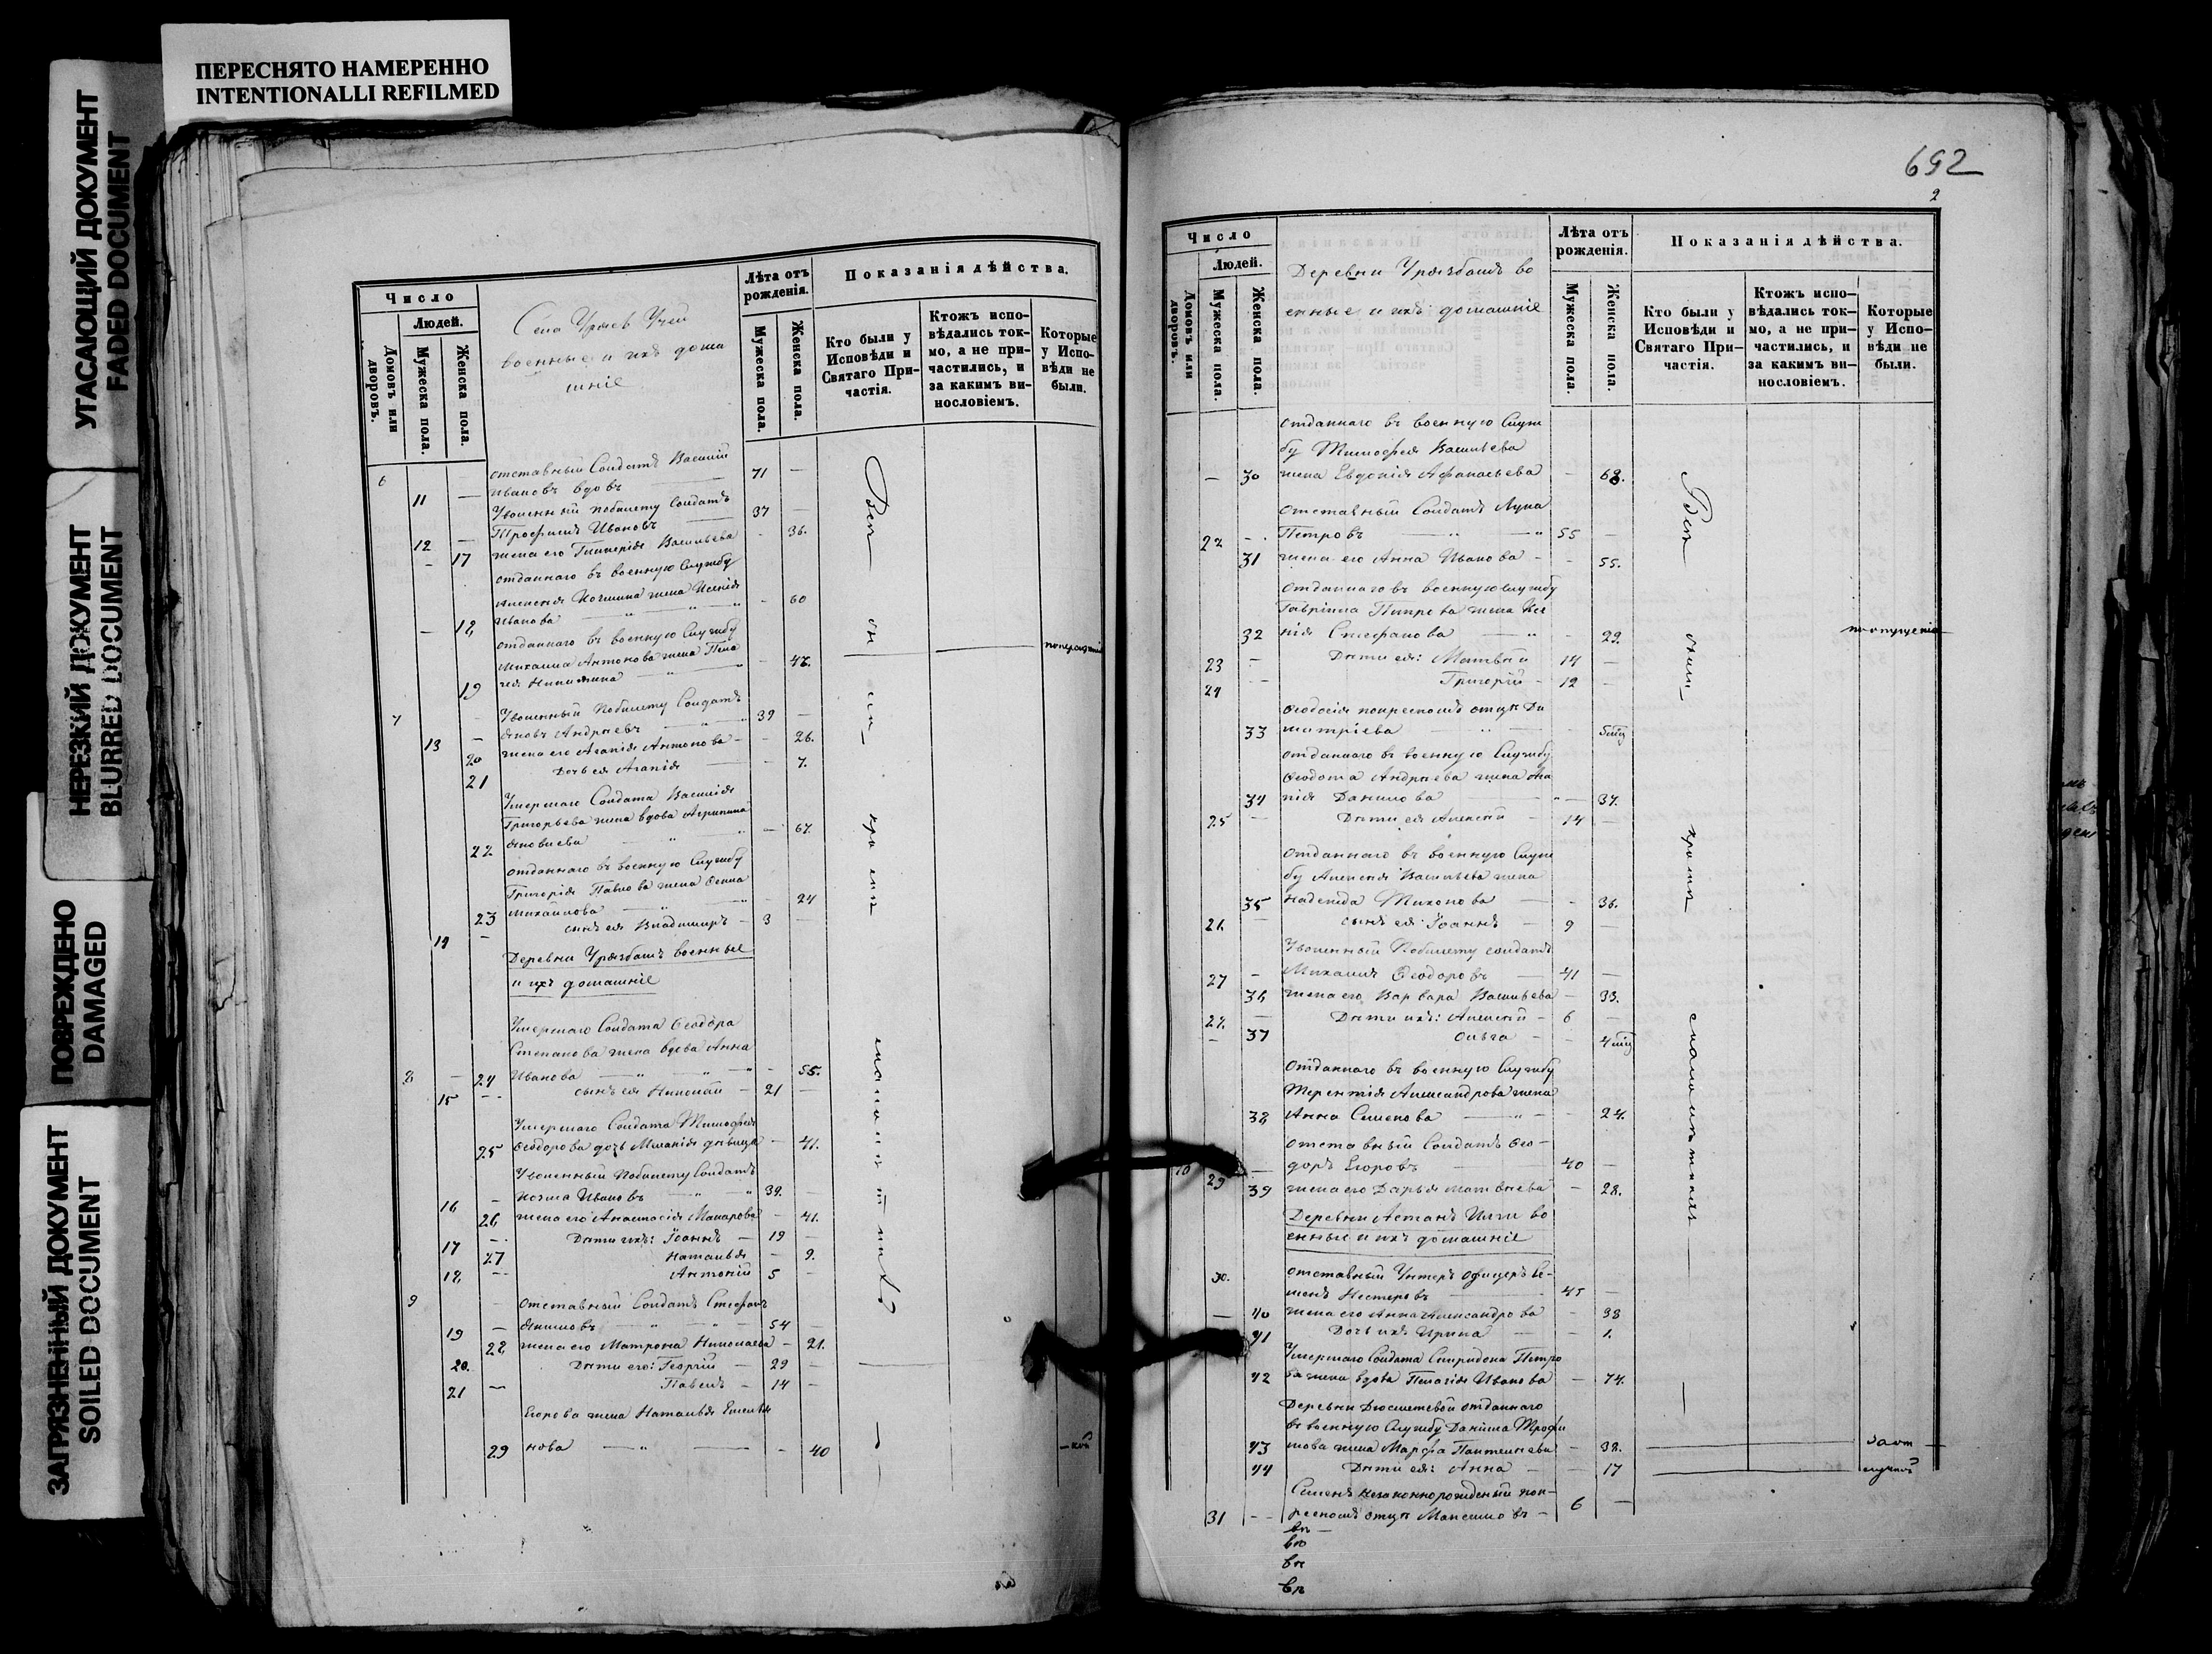 ПЕРЕСНЯТО НАМЕРЕННО
INTENTIONALLI REFILMED
УГАСАЮЩИЙ ДОКУМЕНТ
FADED DOCUMENT
НЕРЕЗКИЙ ДОКУМЕНТ
BLURRED DOCUMENT
ПОВРЕЖДЕНО
DAMAGED
ЗАГРЯЗНЕННЫЙ ДОКУМЕНТ
SOILED DOCUMENT
Число
Людей.
Домовъ или дворовъ.
Мужеска пола.
Женска пола.
военные и ихъ дома
шніе
Лѣта отъ рожденія.
Мужеска пола.
Женска пола.
Показанія дѣйства.
Кто были у Исповѣди и Святаго При-частія.
Ктожъ испо-вѣдались ток-мо, а не при-частились, и за какимъ ви-нословіемъ.
Которые у Испо-вѣди не были.
6 отставный Солдатъ Василій 71 —
11 — Ивановъ вдовъ
Уволенный побилету Солдатъ 37 —
12 — Трофимъ Ивановъ
— 17 жена его Гликерія Васильева - 36.
отданнаго въ военную Службу
жена Ксенія
— 18 Иванова - 60
отданнаго въ военную Службу
Михаила Антонова жена Пела
19 гея Никитина
7 Уволенный побилету Солдатъ 39 —
13 — Яковъ Андреевъ
20 жена его Агапія Антонова - - 26.
21 дочь ея Агапія - 7.
Умершаго Солдата Василія
Григорьева жена вдова Агрипина
22 Яковлева — 67.
отданнаго въ военную Службу
Григорія Павлова жена
23 Михайлова - 24
14 — сынъ ея Владимиръ - 3
Деревни Урязбашъ военные
и ихъ домашніе
Умершаго Солдата Ѳеодора
Степанова жена вдова Анна
8 — 24 Иванова - 55.
15 -- сынъ ея Николай - 21 —
Умершаго Солдата Тимофея
25 Ѳеодорова дочь Меланія дѣвица - 41.
Уволенный побилету Солдатъ
16 — Козма Ивановъ 39. —
26 жена его Анастасія Макарова - 41.
17 -- Дѣти ихъ: Іоаннъ — 19 —
27 Наталья - 9.
18 -- Антоній 5 —
9 Отставный Солдатъ Стефанъ
19 — Якимовъ 54 —
28 жена его Матрона Николаева - 21.
20. Дѣти его: Георгій — 29 —
21 — Павелъ - 14 —
Егорова жена Наталья Емелья
29 нова - 40
692
2
Число
Людей.
Домовъ или дворовъ.
Мужеска пола.
Женска пола.
Деревни Урязбашъ во
енные и ихъ домашніе
Лѣта отъ рожденія.
Мужеска пола.
Женска пола.
Показанія дѣйства.
Кто были у Исповѣди и Святаго При-частія.
Ктожъ испо-вѣдались ток-мо, а не при-частились, и за какимъ ви-нословіемъ.
Которые у Испо-вѣди не были.
отданнаго въ военную Служ
бу Тимофея Васильева
— 30 жена Евдокія Афанасьева - 68.
Отставный Солдатъ Лука
22 - Петровъ 55 —
31 жена его Анна Иванова - - 55.
отданнаго въ военную службу
Гавріила Петрова жена Ксе
32 нія Стефанова - 29.
по опущенію
23 — Дѣти ея: Матвѣй 14 —
24 -- Григорій - 12 —
Ѳеодосія покрестномъ отцѣ Ди
33 митріева
отданнаго въ военную Службу
Ѳеодота Андреева жена Ага
34 пія Данилова — 37.
25 — Дѣти ея Алексѣй - 14 —
отданнаго въ военную Служ
бу Алексея Васильева жена
35 Надежда Тихонова - 36.
26 — сынъ ея Іоаннъ - 9 —
Уволенный побилету солдатъ
27 - Михаилъ Ѳеодоровъ — 41 —
36 жена его Варвара Васильева - 33.
28. — Дѣти ихъ: Алексѣй - 6 —
— 37 Ольга -
Отданнаго въ военную Службу
Терентія Александрова жена
38 Анна Семенова - 24.
отставный Солдатъ Ѳео-
10 29 — доръ Егоровъ 40 —
39 жена его Дарья Матвѣева - 28.
Деревни Астанъ во
енные и ихъ домашніе
30. отставный Унтеръ офицеръ Се-
менъ Нестеровъ 45 —
— 40 жена его Анна Александрова - 38
41 дочь ихъ Ирина - 1.
Умершаго Солдата Спиридона Петро
42 ва жена вдова Пелагія Иванова - 74.
Деревни отданнаго
въ военную Службу Данила Трофи
43 мова жена Марфа Пантелеева - 38.
44 Дѣти ея: Анна - - 17
Семенъ незаконнорожденый пок-
31 -- рестномъ отцѣ Максимовъ - 6 —